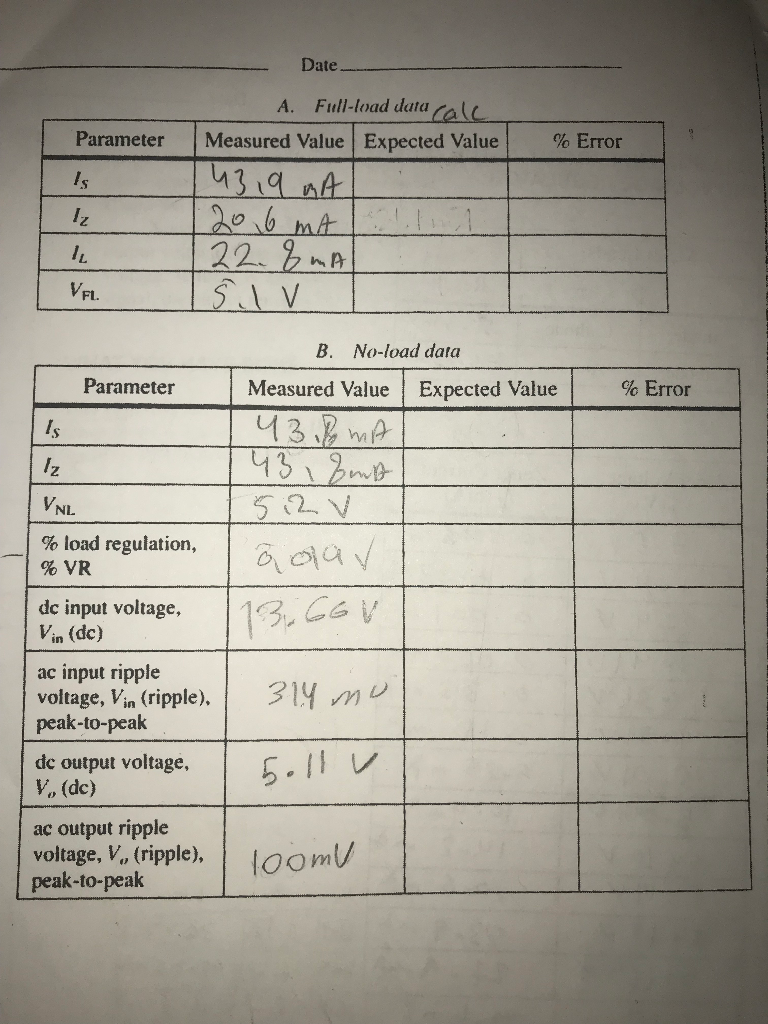 Date
A. Full-load data calc
Parameter Measured Value Expected Value % Error
IS 43.9 mA
IZ 20.6 mA
IL 22.8 mA
VFL 5.1 V
B. No-load data
Parameter Measured Value Expected Value % Error
IS 43.8 mA
IZ 43.8 mA
VNL 5.2 V
% load regulation,
% VR V
dc input voltage, 13.66 V
Vin (dc)
ac input ripple
voltage, Vin (ripple), 314 mV
peak-to-peak
dc output voltage, 5.11 V
Vo (dc)
ac output ripple
voltage, Vo (ripple), 100mV
peak-to-peak